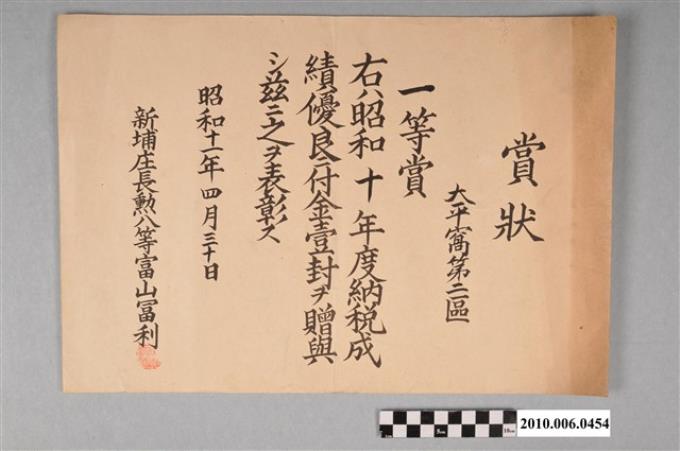 賞狀
大平窩第二區
一等賞
右ハ昭和十年度納税成
績優良ニ付金壹封ヲ贈與
シ茲ニ之ヲ表彰ス
昭和十一年四月三十日
新埔庄長勲八等富山冨利
5cm
10cm
2010.006.0454